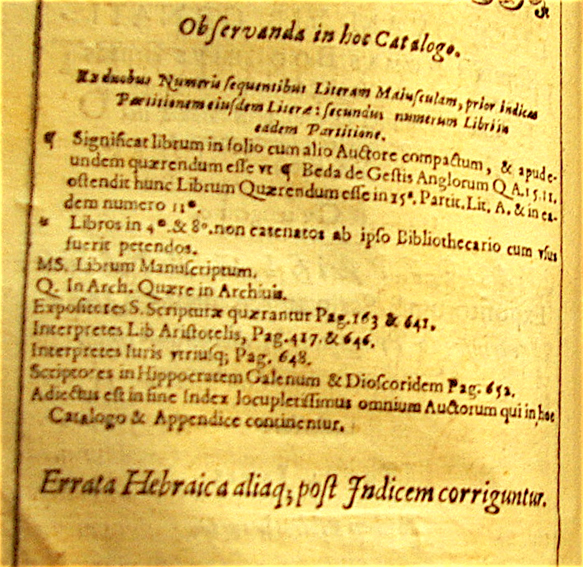 Observanda in hoc Catalogo.
Ex duobus Numeris sequentibus Literam Maiusculam, prior indicat
Partitionem eiusdem Literæ: secundus numerum Libri in
eadem Partitione.
¶ Significat librum in folio cum alio Auctore compactum, & apud e-
undem quærendum esse vt ¶ Beda de Gestis Anglorum Q A.15.11.
ostendit hunc Librum Quærendum esse in 15ª. Partit. Lit. A. & in ea-
dem numero 11º.
* Libros in 4º. & 8º. non catenatos ab ipso Bibliothecario cum vsus
fuerit petendos.
MS. Librum Manuscriptum.
Q. In Arch. Quære in Archiuis.
Expositores S. Scripturæ quærantur Pag. 163 & 641.
Interpretes Lib Aristotelis, Pag. 417. & 646.
Interpretes Iuris vtriusq; Pag. 648.
Scriptores in Hippocratem Galenum & Dioscoridem Pag. 652.
Adiectus est in fine Index locupletissimus omnium Auctorum qui in hoc
Catalogo & Appendice continentur.
Errata Hebraica aliaq; post Indicem corriguntur.